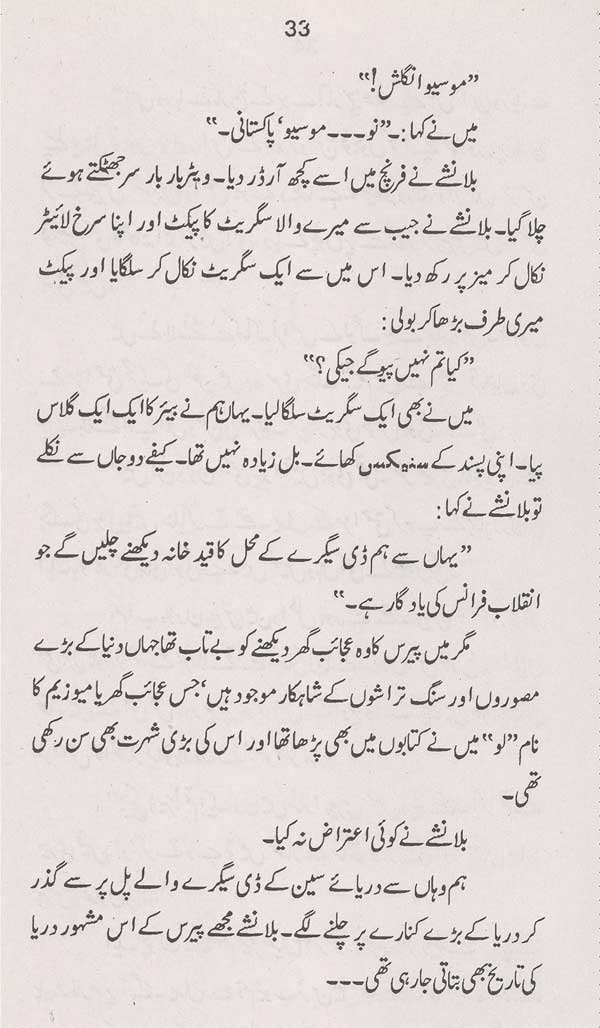 33
"موسیو انگلش!"
میں نے کہا:۔ "نو۔۔۔ موسیو' پاکستانی۔"
بلانشے نے فرنچ میں اسے کچھ آرڈر دیا۔ ویٹر بار بار سر جھٹکتے ہوئے
چلا گیا۔ بلانشے نے جیب سے میرے والا سگریٹ کا پیکٹ اور اپنا سرخ لائیٹر
نکال کر میز پر رکھ دیا۔ اس میں سے ایک سگریٹ نکال کر سلگایا اور پیکٹ
میری طرف بڑھا کر بولی:
"کیا تم نہیں پیو گے جیکی؟"
میں نے بھی ایک سگریٹ سلگا لیا۔ یہاں ہم نے بیئر کا ایک ایک گلاس
پیا۔ اپنی پسند کے سنیکس کھائے۔ بل زیادہ نہیں تھا۔ کیفے دوجاں سے نکلے
تو بلانشے نے کہا:
"یہاں سے ہم ڈی سیگرے کے محل کا قید خانہ دیکھنے چلیں گے جو
انقلاب فرانس کی یاد گار ہے۔"
مگر میں پیرس کا وہ عجائب گھر دیکھنے کو بے تاب تھا جہاں دنیا کے بڑے
مصوروں اور سنگ تراشوں کے شاہکار موجود ہیں' جس عجائب گھر یا میوزیم کا
نام "لو" میں نے کتابوں میں بھی پڑھا تھا اور اس کی بڑی شہرت بھی سن رکھی
تھی۔
بلانشے نے کوئی اعتراض نہ کیا۔
ہم وہاں سے دریائے سین کے ڈی سیگرے والے پل پر سے گذر
کر دریا کے بڑے کنارے پر چلنے لگے۔ بلانشے مجھے پیرس کے اس مشہور دریا
کی تاریخ بھی بتاتی جا رہی تھی۔۔۔